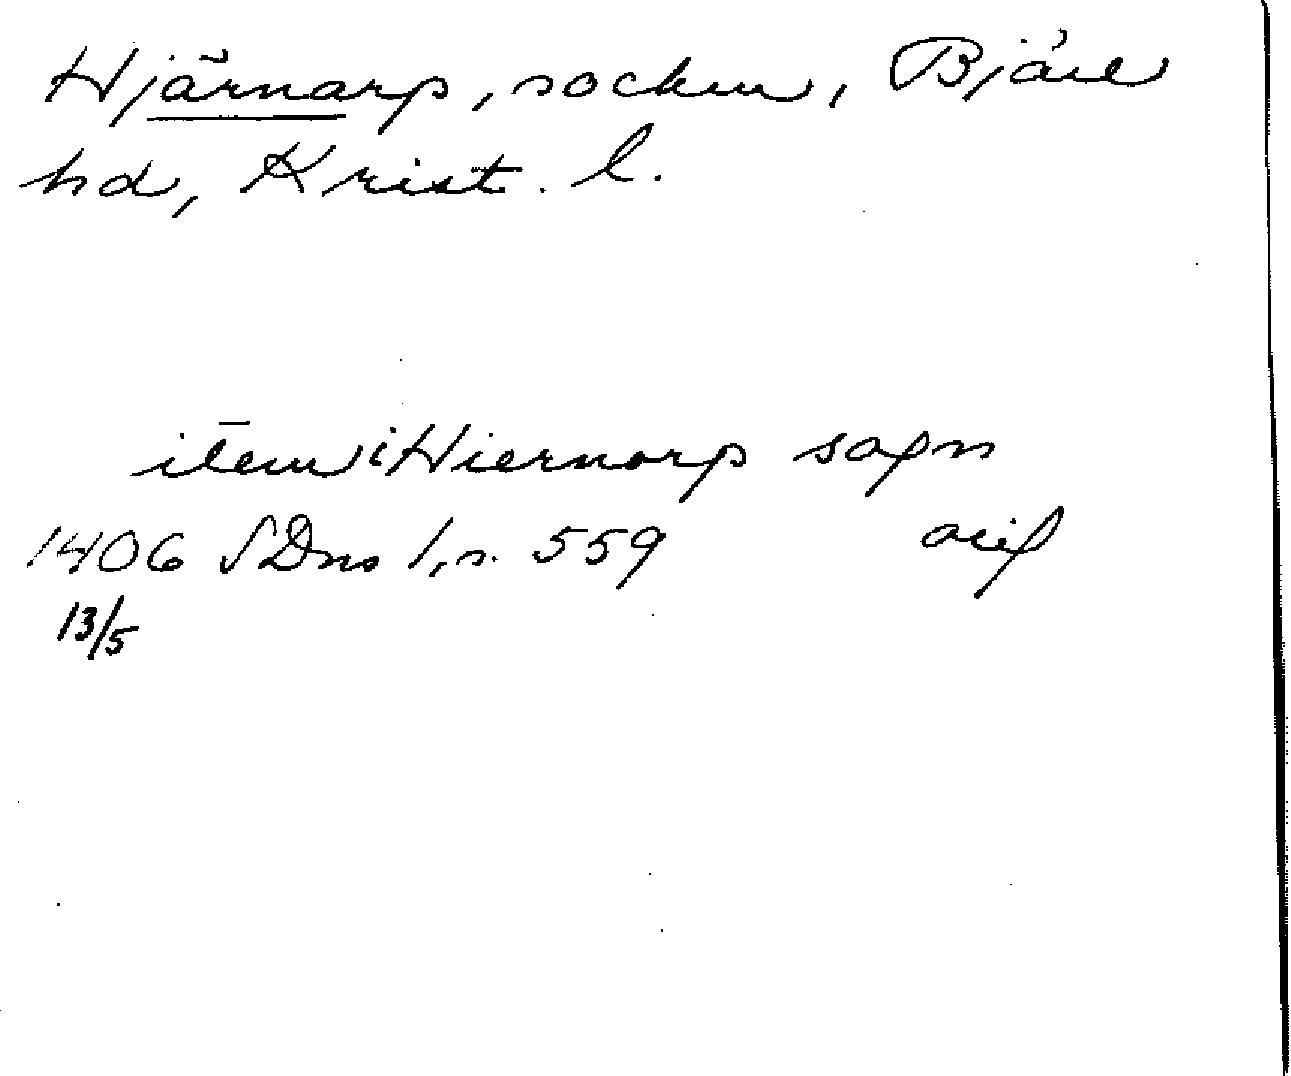 Hjärnarp, socken, Bjäre
hd, Krist. l.
item i Hiernorp sogn
1406 SDns 1, s. 559 orig
13/5